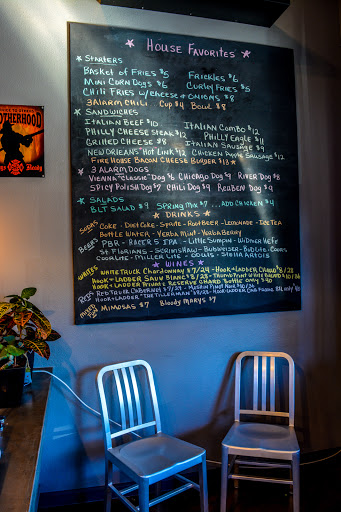 HOUSE FAVORITES
STARTERS
BASKET OF FRIES $5 FRICKLES $6
MINI CORN DOGS $6 CURLEY FRIES $5
CHILI FRIES W/CHEESE & ONIONS $8
3 ALARM CHILI CUP $4 BOWL $8
SANDWICHES
ITALIAN BEEF $10 ITALIAN COMBO $12
PHILLY CHEESE STEAK $12 PHILLY EAGLE $11
GRILLED CHEESE $8 ITALIAN SAUSAGE $9
NEW ORLEANS HOT LINK $12 CHICKEN SAUSAGE $12
FIRE HOUSE BACON CHEESE BURGER $13
3 ALARM DOGS
VIENNA "CLASSIC" DOG $6 CHICAGO DOG $9 RIVER DOG $8
SPICY POLISH DOG $7 CHILI DOG $9 REUBEN DOG $9
SALADS
BLT SALAD $9 SPRING MIX $7 ...ADD CHICKEN $4
DRINKS
SODAS COKE - DIET COKE - SPRITE - ROOT BEER - LEMONADE - ICE TEA
BOTTLE WATER - YERBA MINT - YERBA BERRY
BEERS PBR - RACER 5 IPA - LITTLE SUMPIN - WIDMER HEFE
ST. FLORIANS - SCRIMSHAW - BUDWEISER - BUD LITE - COORS
COORS LITE - MILLER LITE - ODULS - STELLA ARTOIS
WINES
WHITES WHITE TRUCK CHARDONNAY $7/24 - HOOK & LADDER CHARD $8/28
HOOK & LADDER SAUV BLANC $8/28
HOOK & LADDER PRIVATE RESERVE CHARD BOTTLE ONLY $40
REDS RED TRUCK CABERNET $7/24
HOOK & LADDER "THE TILLERMAN" $8/28
MIMOSAS $7 BLOODY MARYS $7
BROTHERHOOD